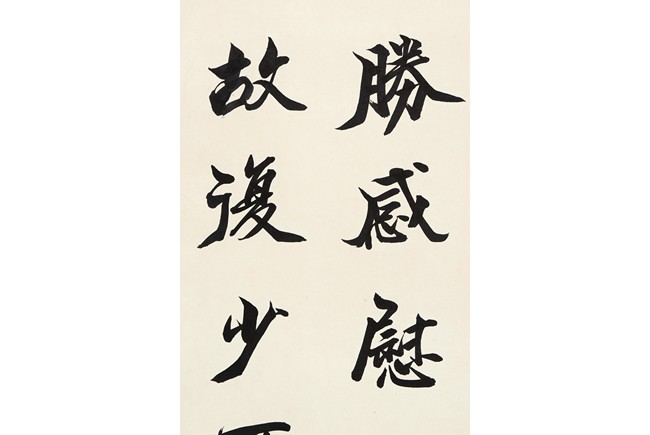 勝感慰
故復少